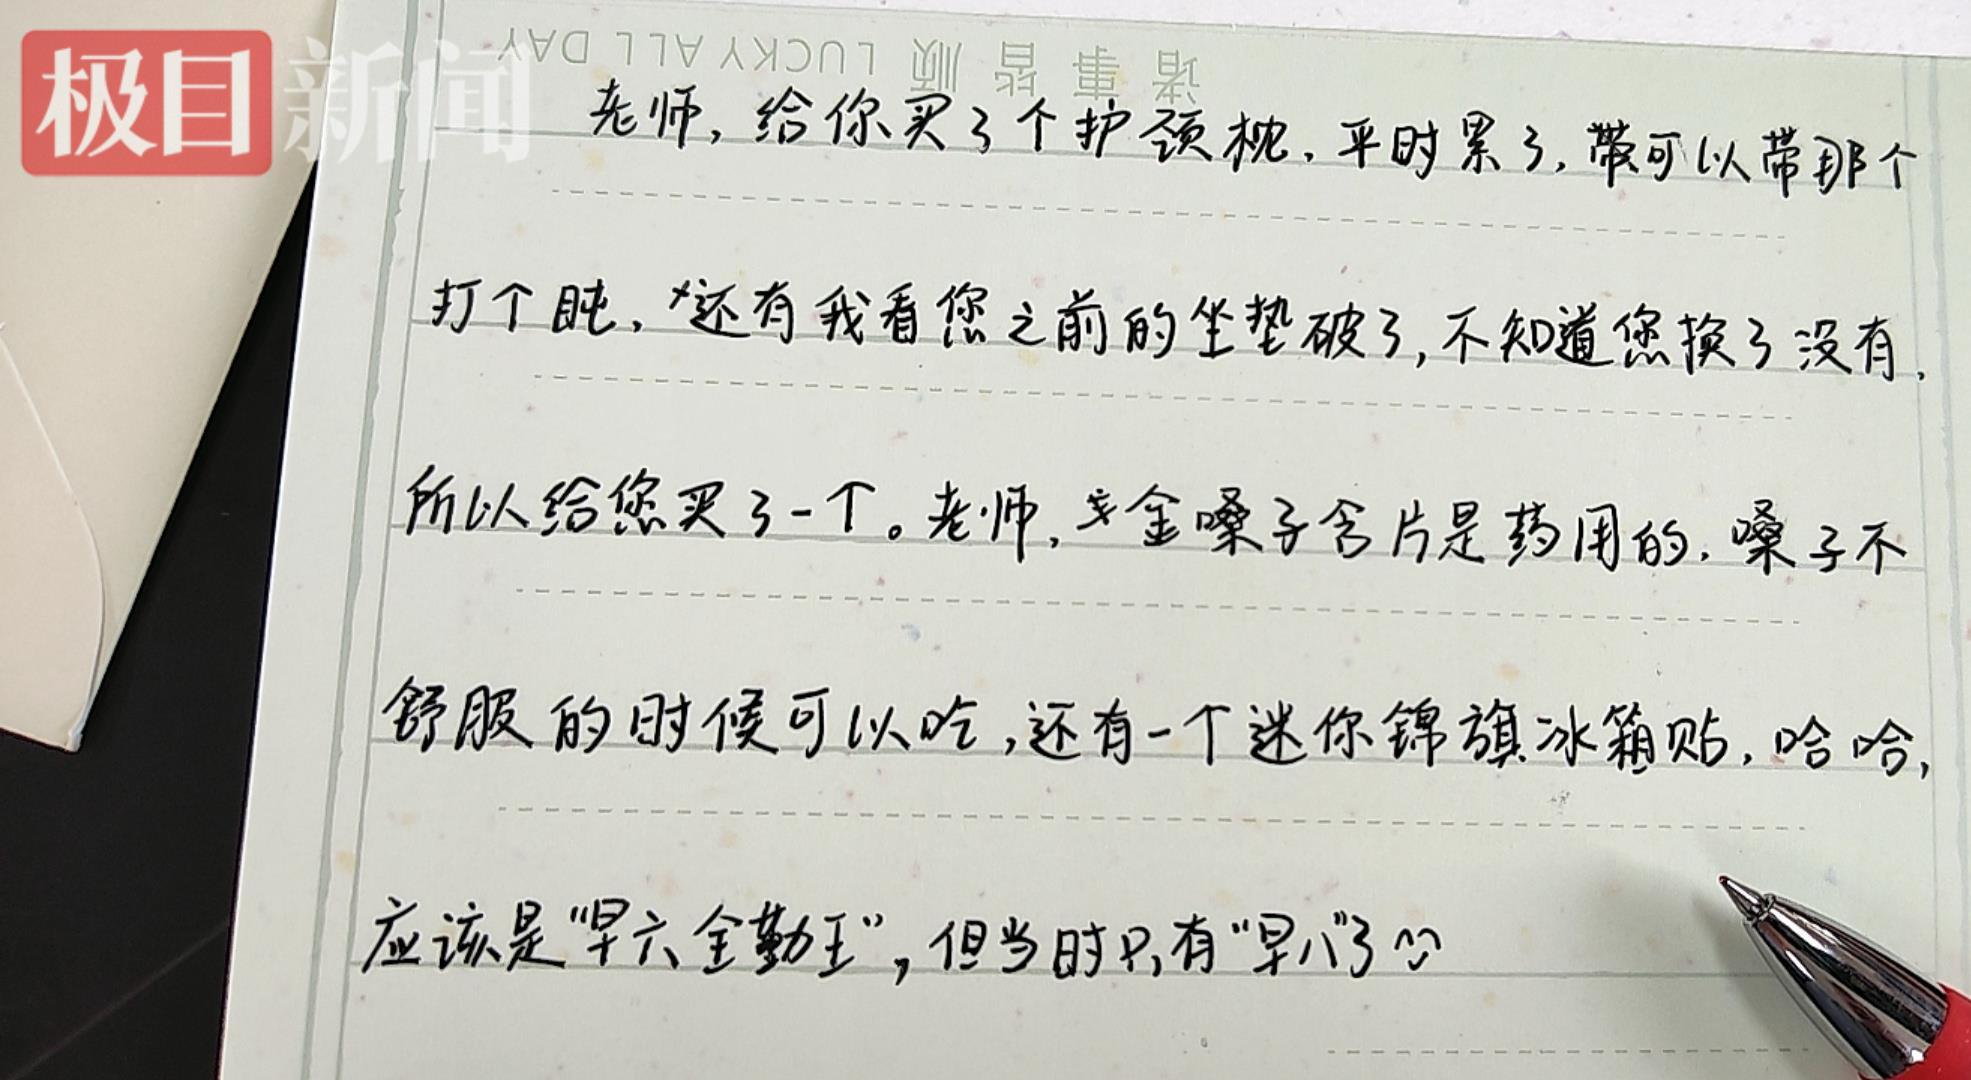 极目新闻
诸事皆顺 LUCKY ALL DAY
老师，给你买了个护颈枕，平时累了，带可以带那个
打个盹，还有我看您之前的坐垫破了，不知道您换了没有，
所以给您买了一个。老师，金嗓子含片是药用的，嗓子不
舒服的时候可以吃，还有一个迷你锦旗冰箱贴，哈哈，
应该是“早六全勤王”，但当时只有“早八”了